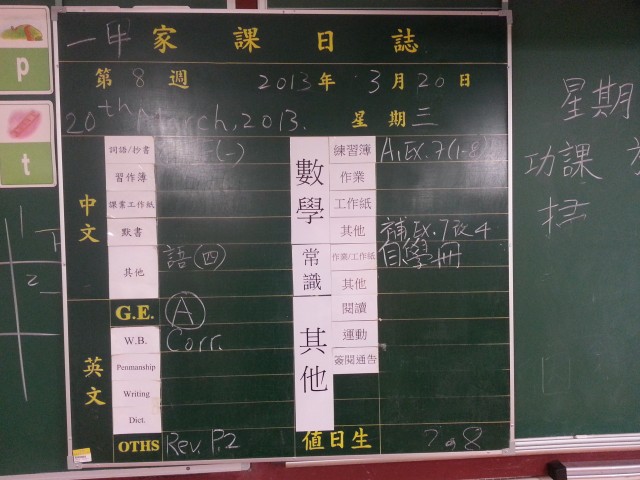 一甲 家課日誌
第 8 週 2013年 3月20日
20th March, 2013. 星期三
中文
詞語/抄書 (一)
習作簿
課業工作紙
默書
其他 語(四)
英文
G.E. A
W.B. Corr.
Penmanship
Writing
Dict.
OTHS Rev. P.2
數學
練習簿 A,Ex.7(1-8)
作業
工作紙
其他 補Ex.7改4
常識
作業/工作紙 自學冊
其他
其他
閱讀
運動
簽閱通告
值日生 7 8
p
t
星期
功課
2